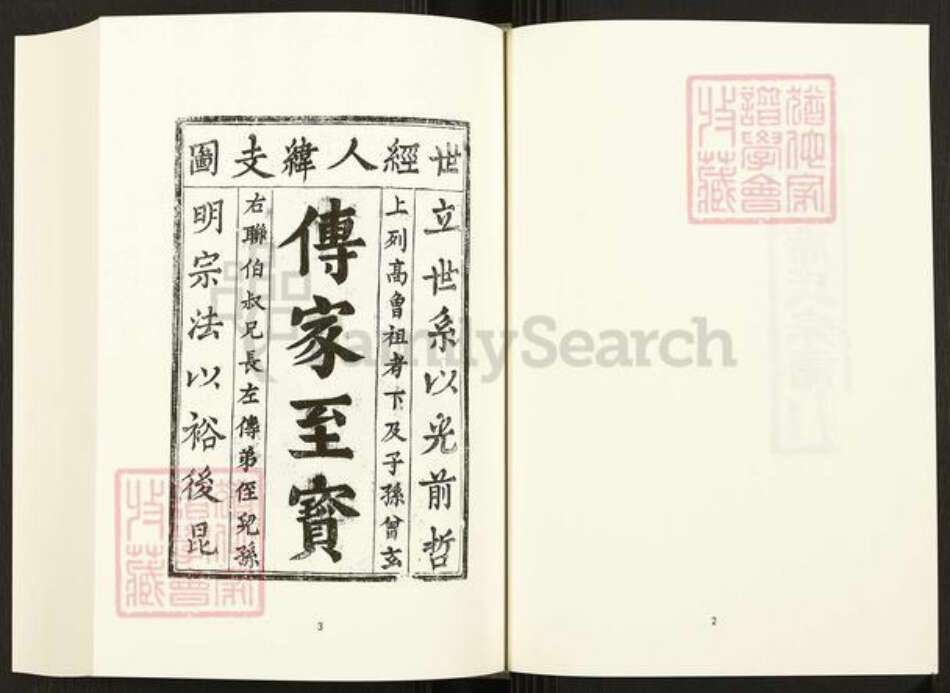 世經人緯支圖
立世系以光前哲
上列高曾祖考下及子孫曾玄
傳家至寶
右聯伯叔兄長左傳弟侄兒孫
明宗法以裕後昆
3
2
FamilySearch
譜學會
收藏